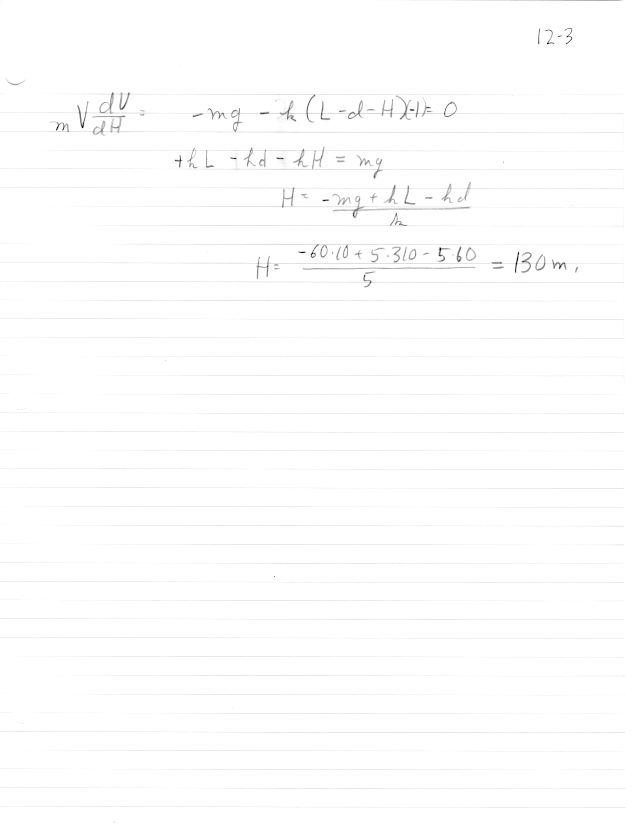 12-3
m V dV/dH = -mg - k (L-d-H)(-1) = 0
+kL - kd - kH = mg
H = -mg + kL - kd / k
H = -60·10 + 5·310 - 5·60 / 5 = 130m.